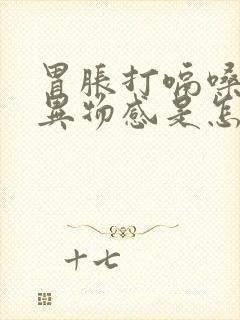 胃胀打嗝嗓
异物感是怎
十七